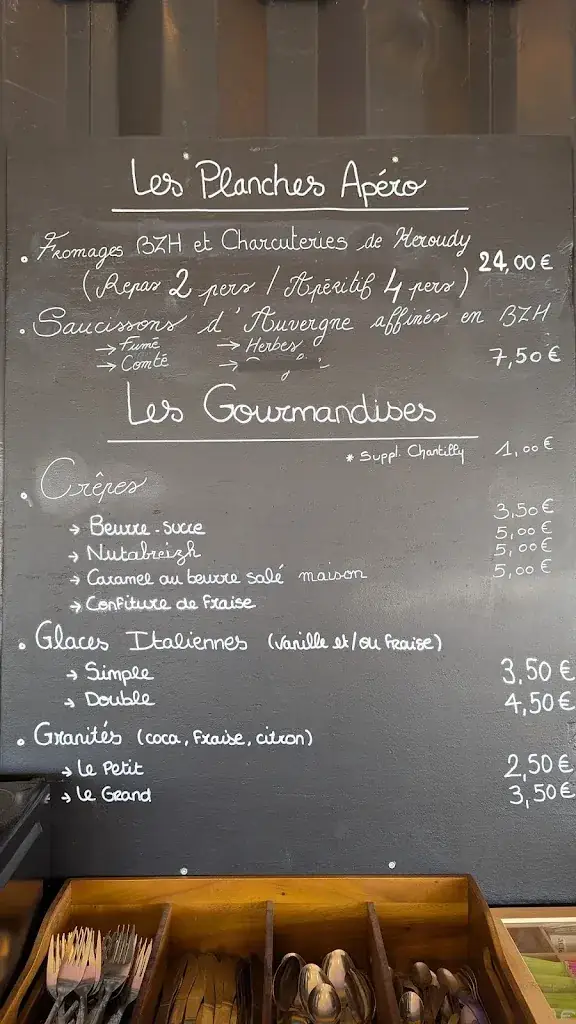 Les Planches Apéro
. Fromages BZH et Charcuteries de Keroudy 24,00 €
(Repas 2 pers / Apéritif 4 pers)
. Saucissons d'Auvergne affinés en BZH 7,50 €
→ Fumé → Herbes
→ Comté →
Les Gourmandises
* Suppl. Chantilly 1,00 €
. Crêpes
→ Beurre-sucre 3,50 €
→ Nutabreizh 5,00 €
→ Caramel au beurre salé maison 5,00 €
→ Confiture de fraise 5,00 €
. Glaces Italiennes (vanille et/ou fraise)
→ Simple 3,50 €
→ Double 4,50 €
. Granités (coca, fraise, citron)
→ Le Petit 2,50 €
→ Le Grand 3,50 €